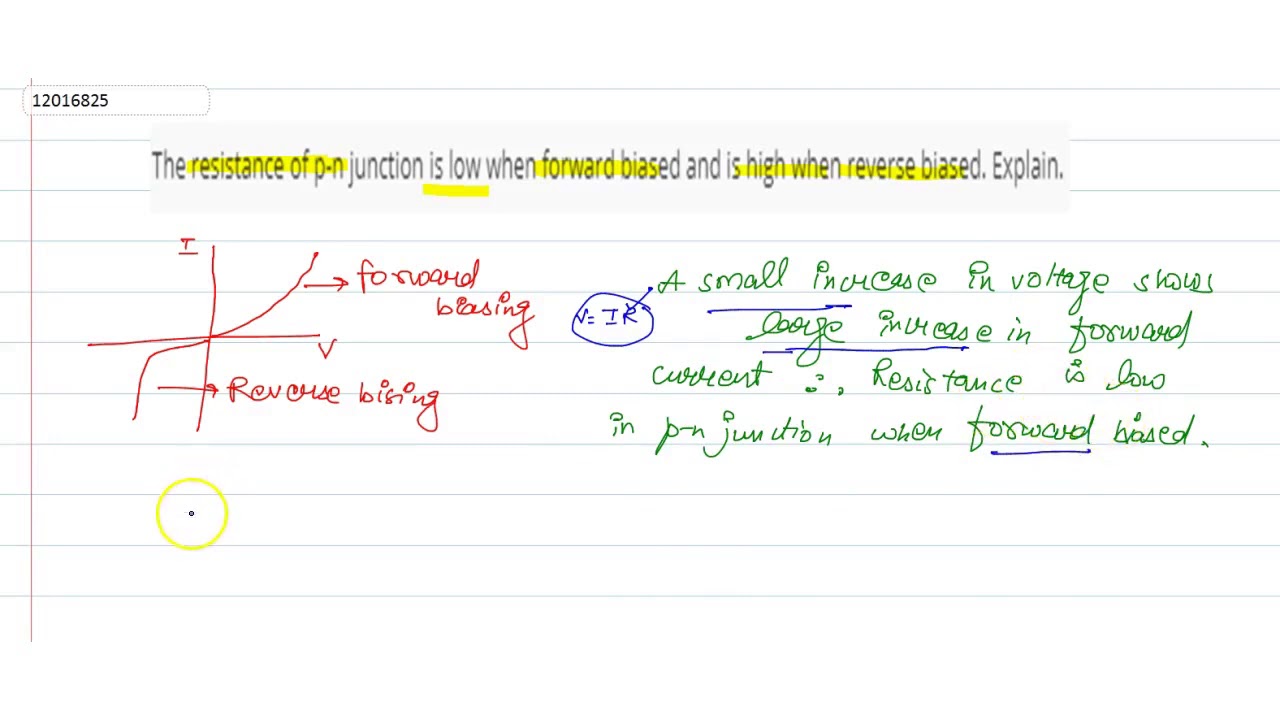 12016825
The resistance of p-n junction is low when forward biased and is high when reverse biased. Explain.
I
forward
biasing
V
Reverse bising
V = IR
A small increase in voltage shows
large increase in forward
current ∴ Resistance is low
in p-n junction when forward biased.